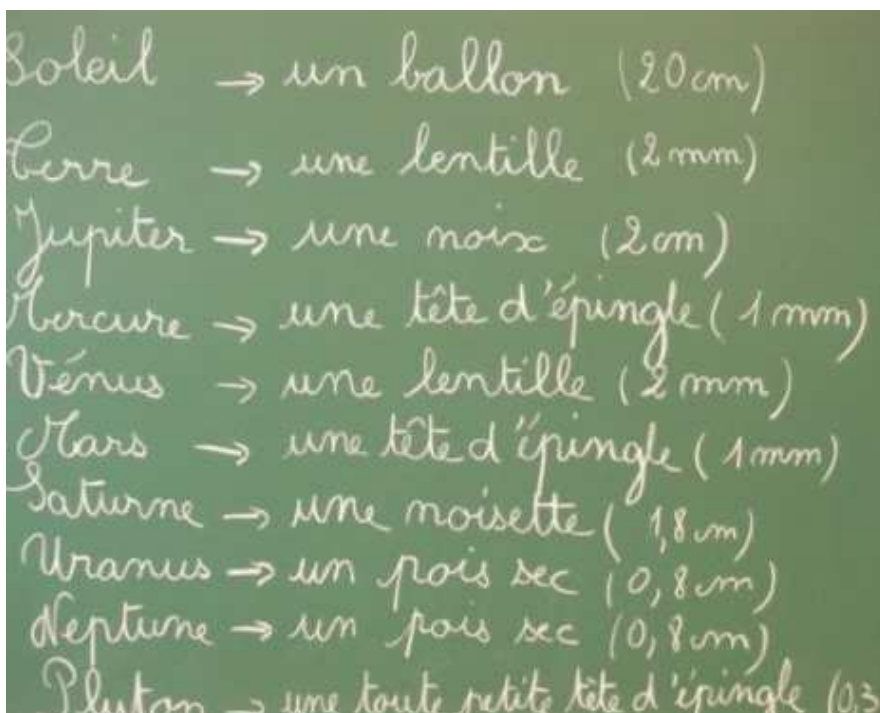 Soleil → un ballon (20cm)
Terre → une lentille (2mm)
Jupiter → une noix (2cm)
Mercure → une tête d'épingle (1mm)
Vénus → une lentille (2mm)
Mars → une tête d'épingle (1mm)
Saturne → une noisette (1,8cm)
Uranus → un pois sec (0,8cm)
Neptune → un pois sec (0,8cm)
Pluton → une toute petite tête d'épingle (0,3